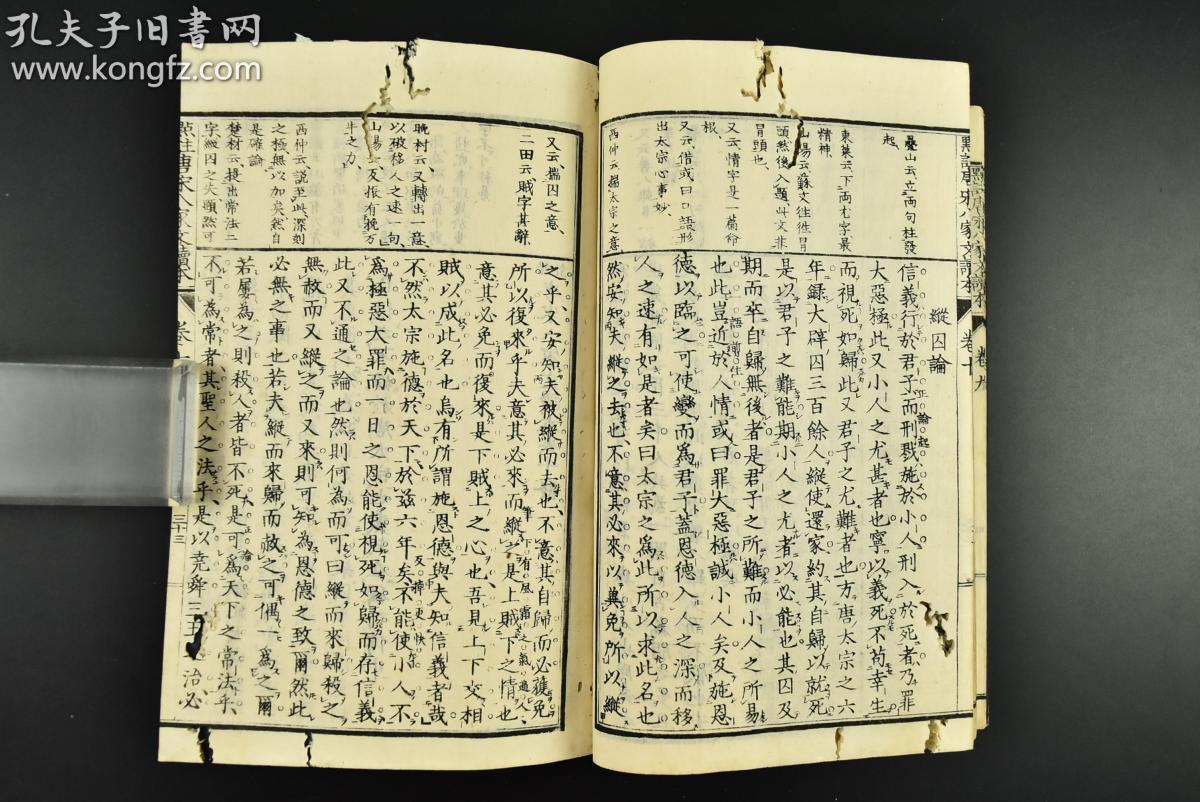 孔夫子旧書网
www.kongfz.com
疊山云、立両句柱發
起、
東萊云、下両尤字最
精神、
山陽云、蘇文往往冒
頭然後入題、此文非
冒頭也、
又云、情字是一篇命
根、
又云、借或曰口語形
出太宗心事妙、
西仲云、揣太宗之意
縱囚論
信義行於君子而刑戮施於小人刑入於死者乃罪
大惡極此又小人之尤甚者也寧以義死不苟幸生
而視死如歸此又君子之尤難者也方唐太宗之六
年錄大辟囚三百餘人縱使還家約其自歸以就死
是以君子之難能期小人之尤者以必能也其囚及
期而卒自歸無後者是君子之所難而小人之所易
也此豈近於人情或曰罪大惡極誠小人矣及施恩
德以臨之可使變而為君子蓋恩德入人之深而移
人之速有如是者矣曰太宗之為此所以求此名也
然安知夫縱之去也不意其必來以冀免所以縱
正論起
卷十
又云、揣囚之意、
二田云、賊字甚辭
晚村云、又轉出一意
以破移人之速一句、
山陽云、反振有挽万
牛之力、
西仲云、說至此、深刻
之極無以加矣、然自
是確論、
楚材云、提出常法二
字縱囚之失顕然可
之乎又安知夫被縱而去也不意其自歸而必獲免
所以復來乎夫意其必來而縱之是上賊下之情也
意其必免而復來是下賊上之心也吾見上下交相
賊以成此名也烏有所謂施恩德與夫知信義者哉
不然太宗施德於天下於茲六年矣不能使小人不
為極惡大罪而一日之恩能使視死如歸而存信義
此又不通之論也然則何為而可曰縱而來歸殺之
無赦而又縱之而又來則可知為恩德之致爾然此
必無之事也若夫縱而來歸而赦之可偶一為之爾
若屢為之則殺人者皆不死是可為天下之常法乎
不可為常者其聖人之法乎是以堯舜三王之治必
三十三